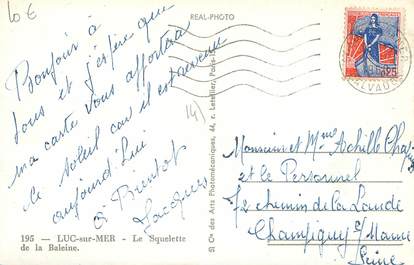 10 €
REAL-PHOTO
Bonjour à
tous et j'espère que
ma carte vous apportera
le soleil car il est revenu
aujourd'hui
à Bientôt
Jacques
(4)
195 — LUC-sur-MER - Le Squelette
de la Baleine.
Sté Cse des Arts Photomécaniques, 44, r. Letellier, Paris-15e
Monsieur et Mme Achille
et le Personnel
72 chemin de la Lande
Champigny s/Marne
Seine